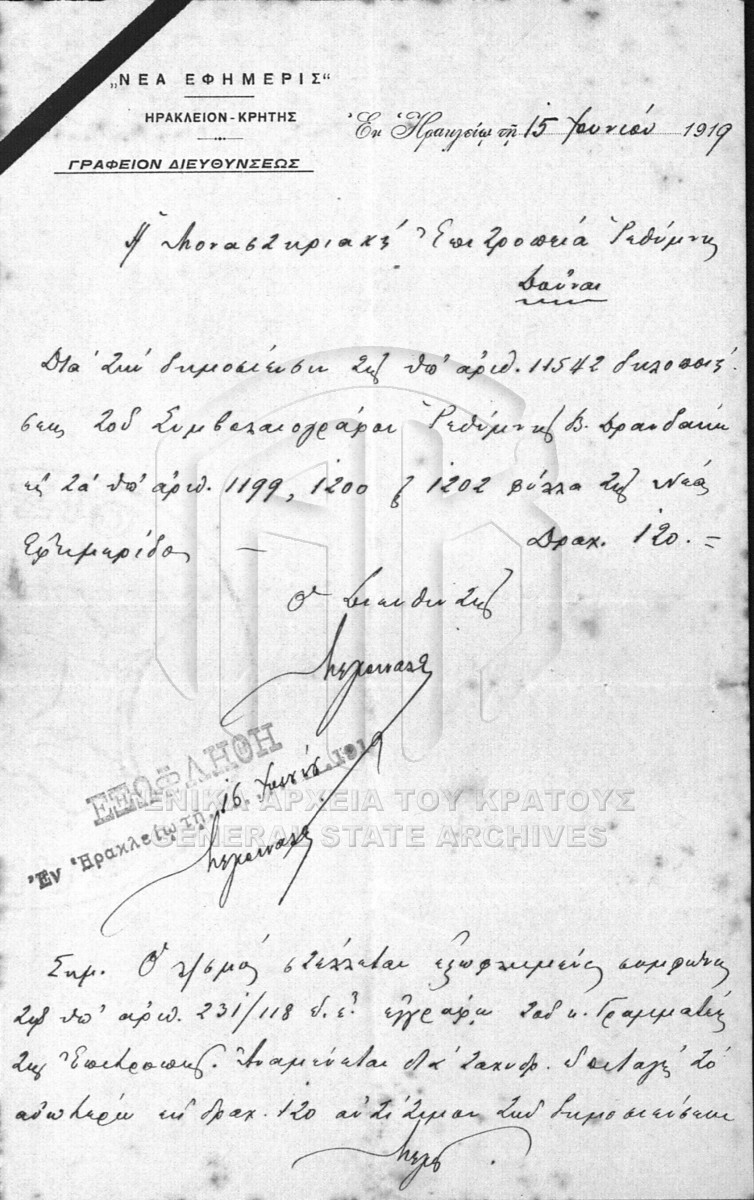 „ΝΕΑ ΕΦΗΜΕΡΙΣ“
ΗΡΑΚΛΕΙΟΝ - ΚΡΗΤΗΣ
ΓΡΑΦΕΙΟΝ ΔΙΕΥΘΥΝΣΕΩΣ
Ἐν Ἡρακλείῳ τῇ 15 Ἰουνίου 1919
Ἡ Μοναστηριακή Ἐπιτροπεία Ρεθύμνης
Δοῦναι
Διά την δημοσίευσιν της ὑπ' ἀριθ. 11542 δηλοποιή-
σεως τοῦ Συμβολαιογράφου Ρεθύμνης Β. Δρανδάκη
εἰς τά ὑπ' ἀριθ. 1199, 1200 ϗ 1202 φύλλα της Νέας
Εφημερίδος — Δραχ. 120.=
Ο Διευθυντης
ΕΞΩΦΛΗΘΗ
Ἐν Ἡρακλείῳ τῃ 16 Ἰουνίου 1919
ΓΕΝΙΚΑ ΑΡΧΕΙΑ ΤΟΥ ΚΡΑΤΟΥΣ
GENERAL STATE ARCHIVES
Σημ. Ὁ λ/σμός στέλλεται εξωφλημένος συμφώνως
τῳ ὑπ' ἀριθ. 231/118 ἐ. ἐ. εγγράφῳ τοῦ κ. Γραμματέως
της Ἐπιτροπης. Ἀναμένεται διά ταχυδρ. ἐπιταγης τό
ανωτέρω εκ δραχ. 120 αντίτιμον των δημοσιεύσεων